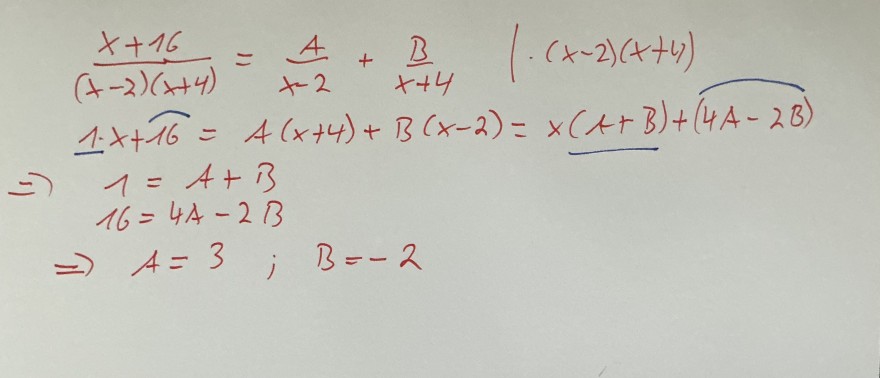 (x+16)/((x-2)(x+4)) = A/(x-2) + B/(x+4) | · (x-2)(x+4)
1·x+16 = A(x+4)+B(x-2) = x(A+B)+(4A-2B)
=> 1 = A+B
16 = 4A-2B
=> A = 3 ; B = -2